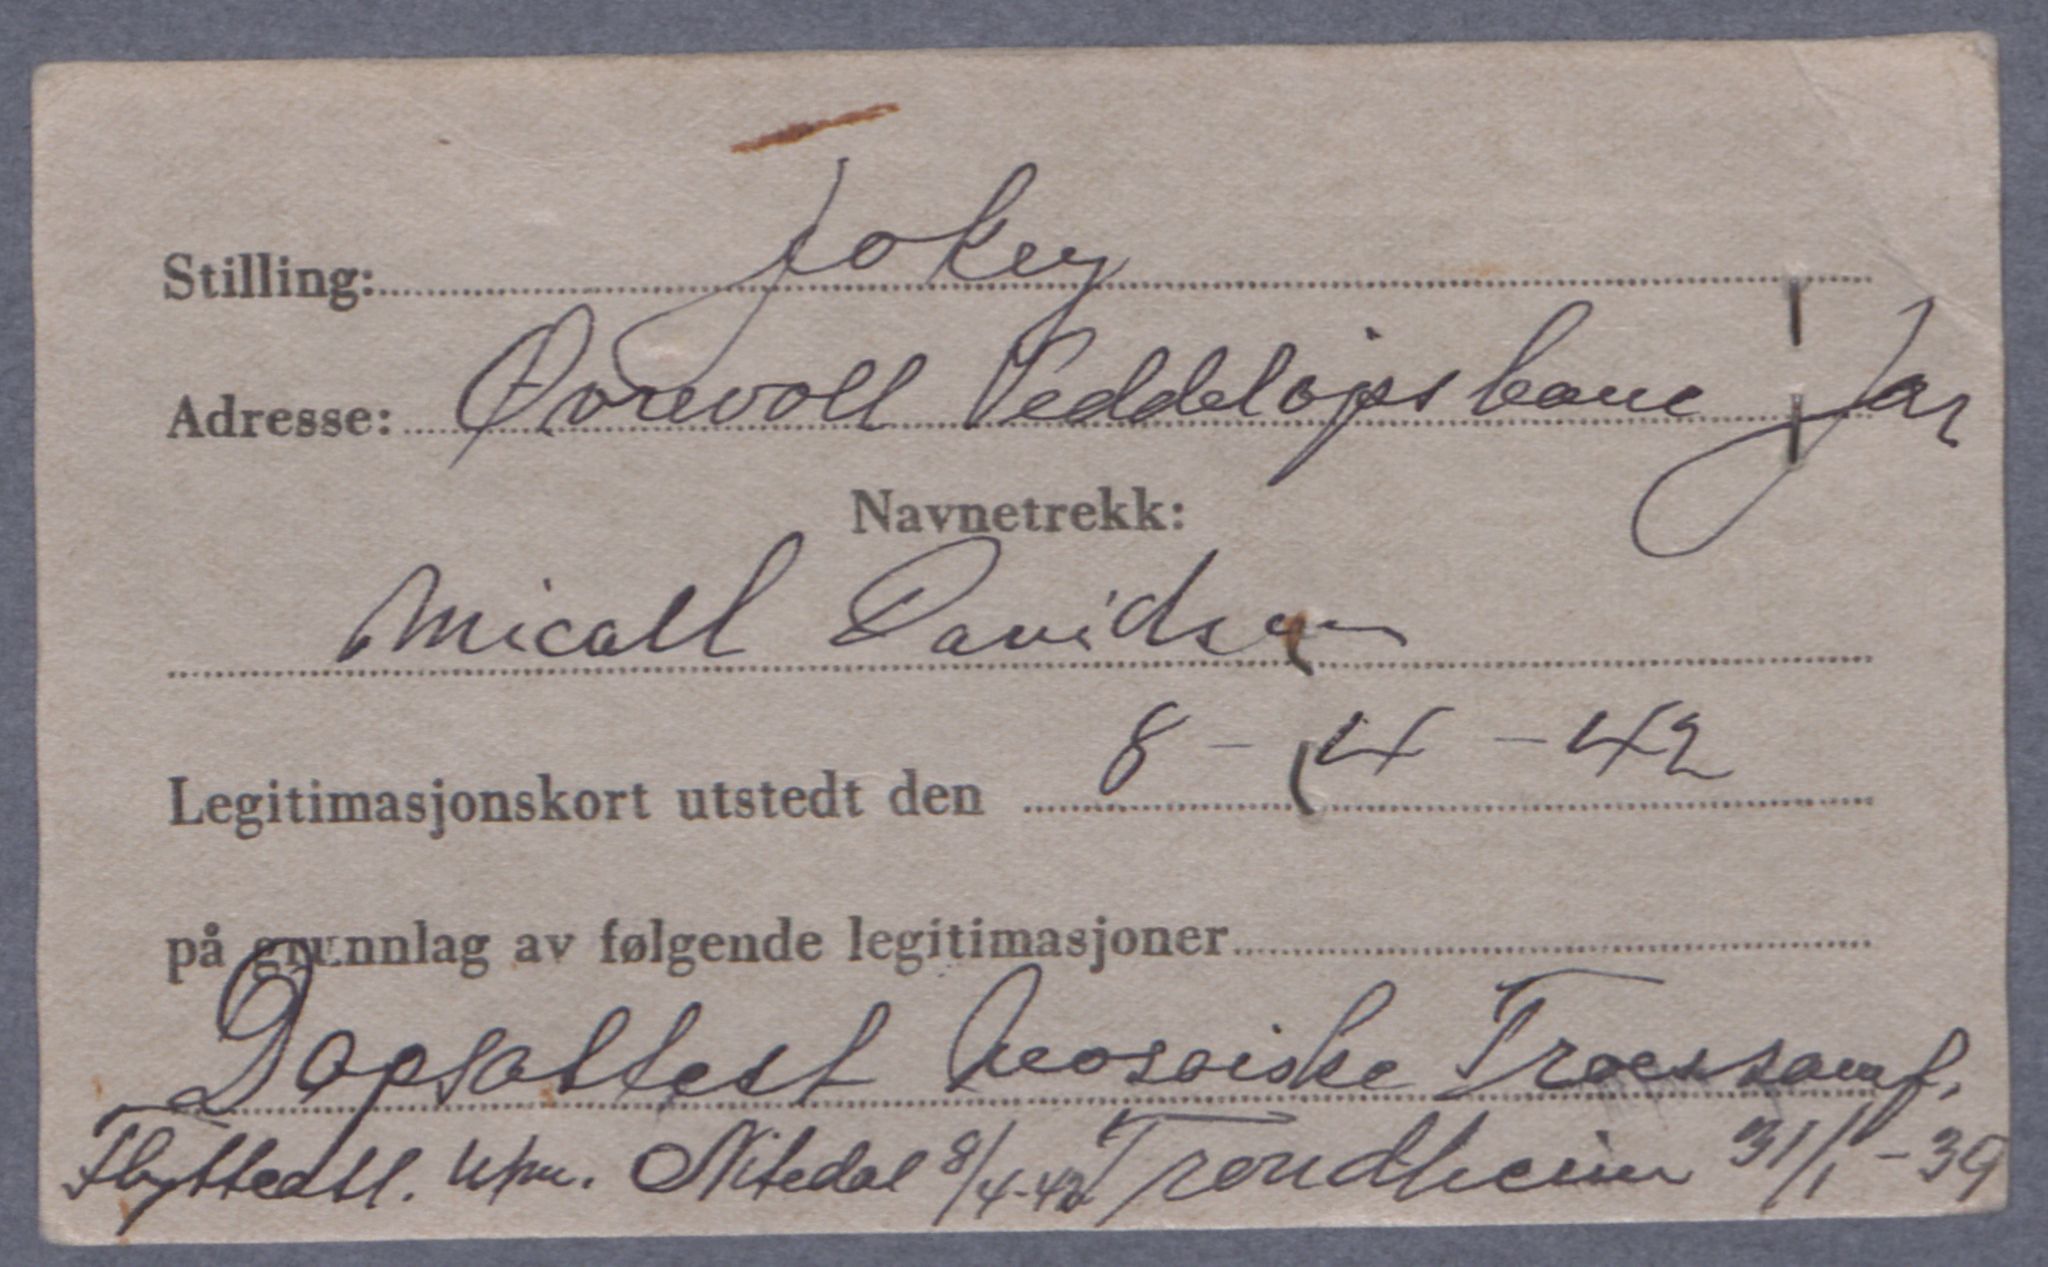 Stilling: Jokey
Adresse: Øvrevoll Veddeløpsbane Jar
Navnetrekk:
Micall Davidsen
Legitimasjonskort utstedt den 8-4-42
på grunnlag av følgende legitimasjoner
Dåpsattest Mosaiske Troessamf.
Flytteatt. Nitedal 8/4-42 Trondheim 31/1-39